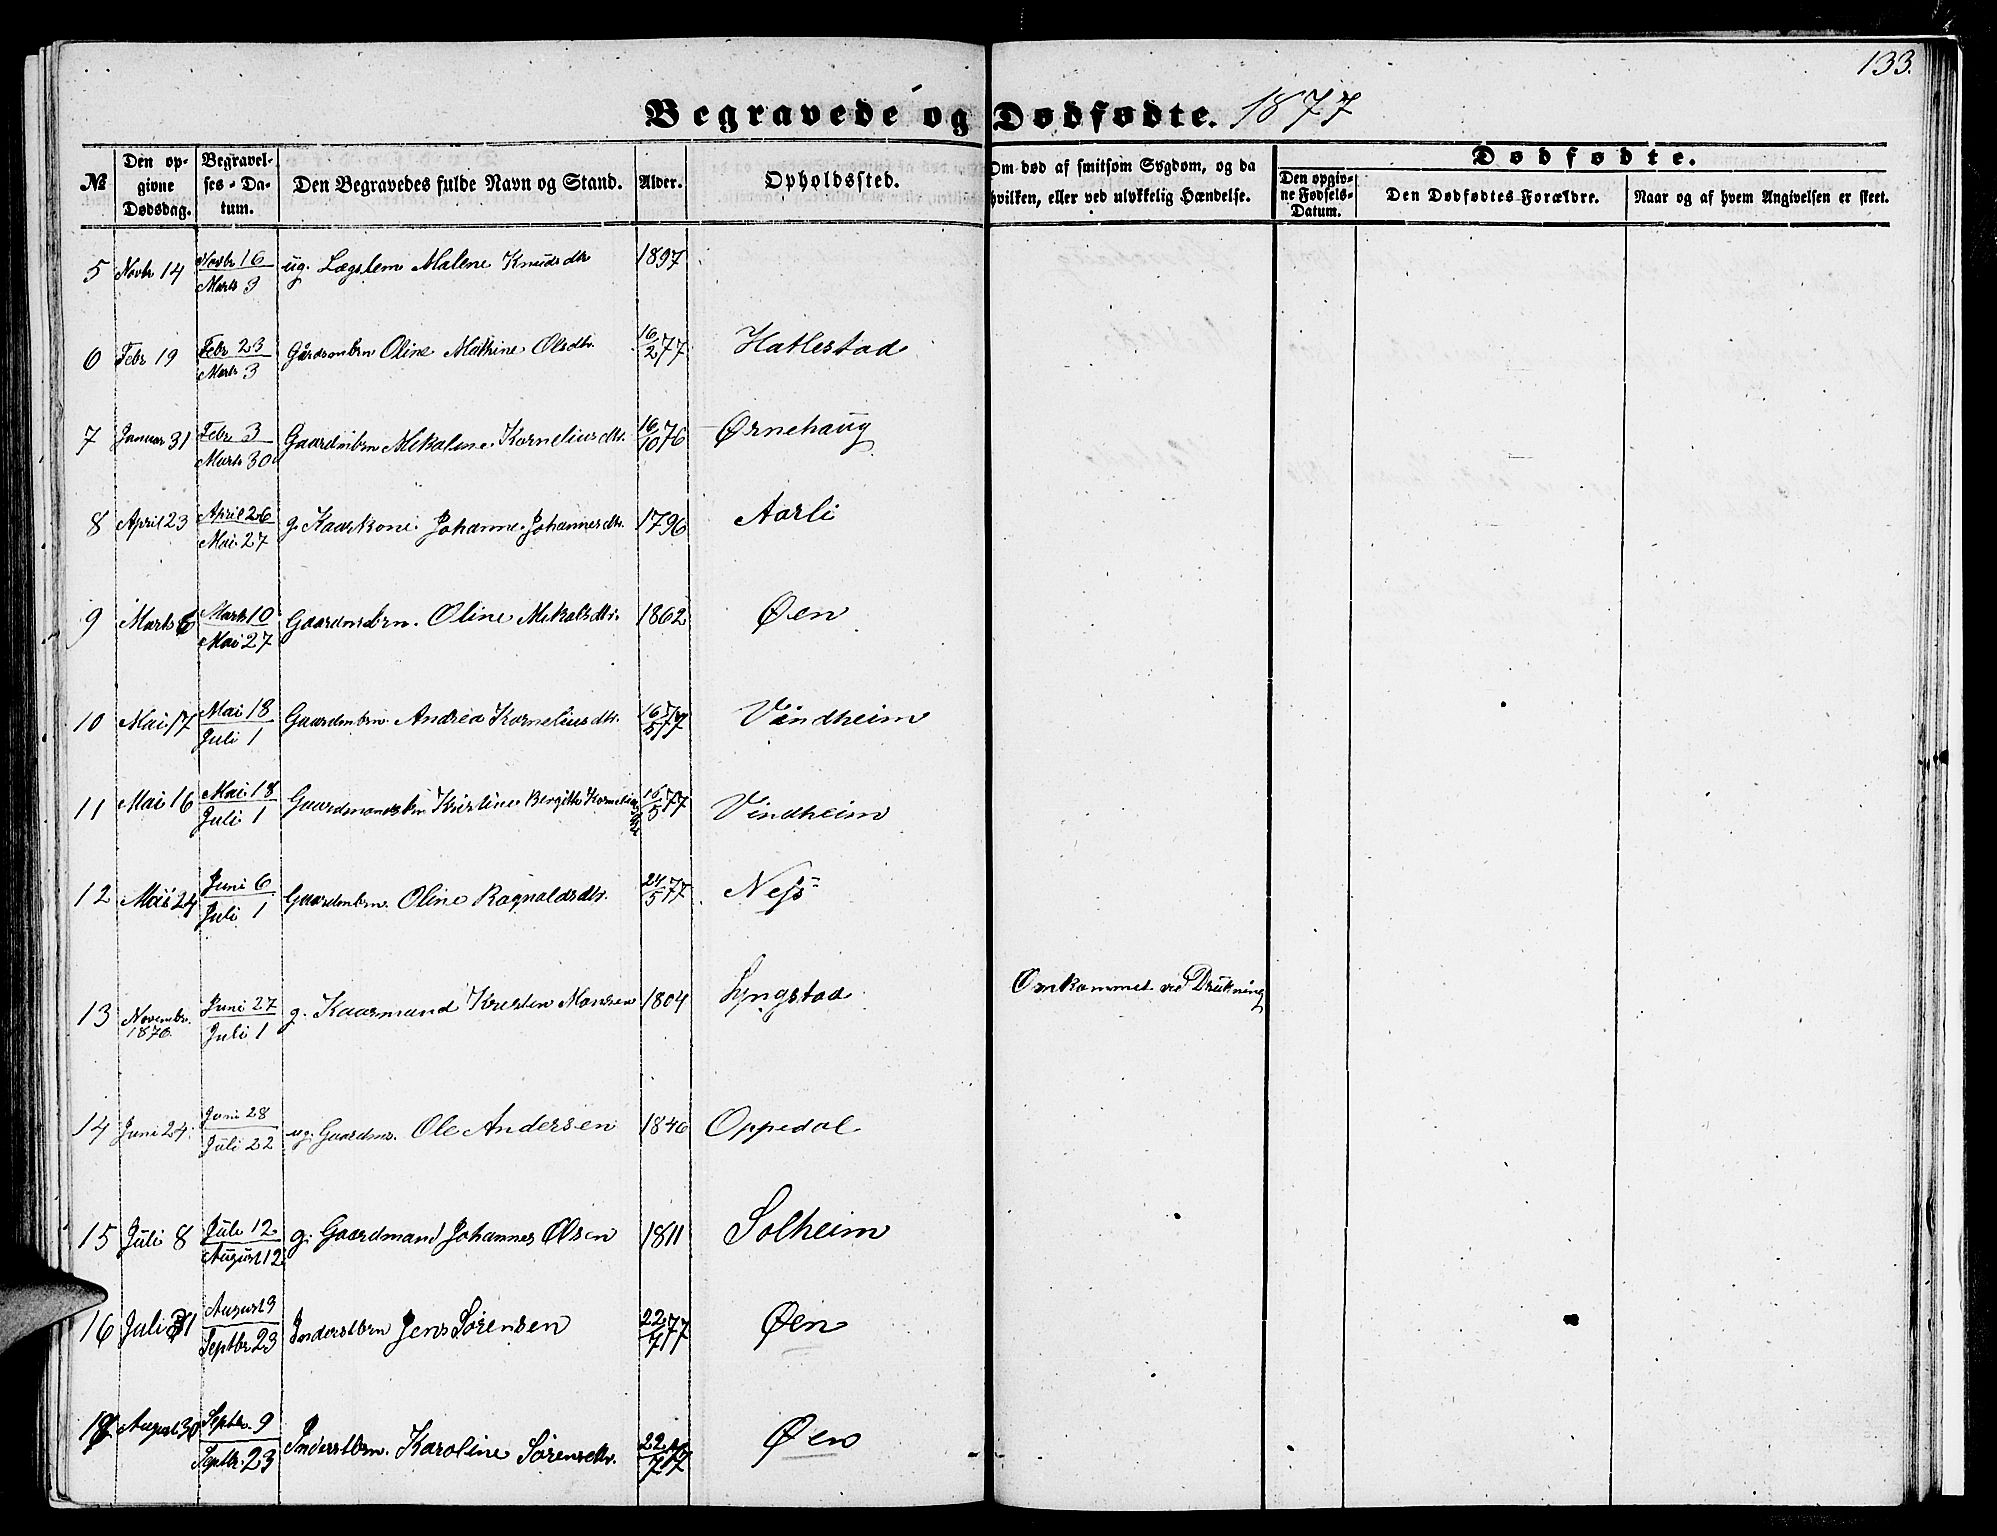 133.
Begravede og Dødfødte. 1877
№ | Den opgivne Dødsdag. | Begravelses-Datum. | Den Begravedes fulde Navn og Stand. | Alder. | Opholdssted. | Om død af smitsom Sygdom, og da hvilken, eller ved ulykkelig Hændelse. | Dødfødte. | Den opgivne Fødsels-Datum. | Den Dødfødtes Forældre. | Naar og af hvem Angivelsen er skeet.
5 | Novbr 14 | Novbr 16 / Marts 3 | ug. Lægslem Malene Knudsdtr | 1897
6 | Febr 19 | Febr 23 / Marts 3 | Gårdsmbrn Oline Mathine Olsdtr. | 16/2 77 | Hatlestad
7 | Januar 31 | Febr 3 / Marts 30 | Gaardmbrn Mikaline Korneliusdtr. | 16/10 76 | Ørnehaug
8 | April 23 | April 26 / Mai 27 | g. Kaarkone Johanne Johannesdtr. | 1796 | Aarli
9 | Marts 6 | Marts 10 / Mai 27 | Gaardmsbrn. Oline Mikalsdtr. | 1862 | Øen
10 | Mai 17 | Mai 18 / Juli 1 | Gaardmbrn Andrea Korneliusdtr. | 16/5 77 | Vindheim
11 | Mai 16 | Mai 18 / Juli 1 | Gaardmandsbn Kristine Bergithe Korneliusdtr | 16/5 77 | Vindheim
12 | Mai 24 | Juni 6 / Juli 1 | Gaardmbrn. Oline Ragnaldsdtr. | 24/5 77 | Ness
13 | Novembr. 1876. | Juni 27 / Juli 1 | g. Kaarmand Kristen Monsen | 1804 | Lyngstad | Omkommet ved Drukning
14 | Juni 24. | Juni 28 / Juli 22 | ug. Gaardm. Ole Andersen | 1846 | Oppedal
15 | Juli 8 | Juli 12 / August 12 | g. Gaardmand Johannes Olsen | 1811 | Solheim
16 | Juli 31 | August 3 / Septbr 23 | Inderstbrn Jens Sørensen | 22/7 77 | Øen
17 | August 30 | Septbr. 9 / Septbr. 23 | Inderstbrn. Karoline Sørensdtr. | 22/7 77 | Øen